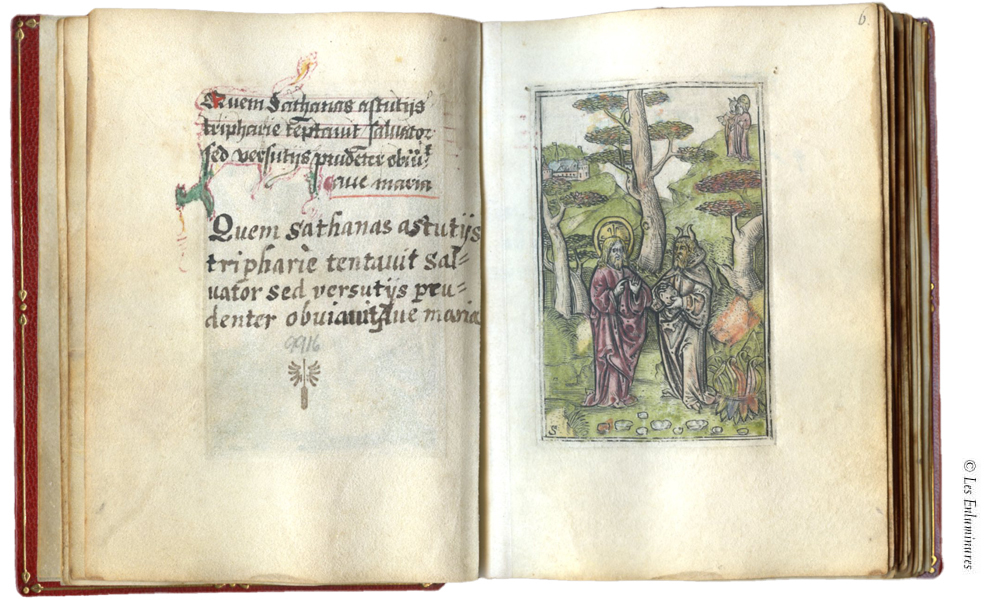 Quem Sathanas astutijs
tripharie te͞ptavit salvator
sed versutijs prude͞ter obiu͞
ave maria
Quem sathanas astutijs
tripharie tentauit sal=
uator sed versutijs pru=
denter obuiauit Aue maria
9916
S
6.
© Les Enluminures